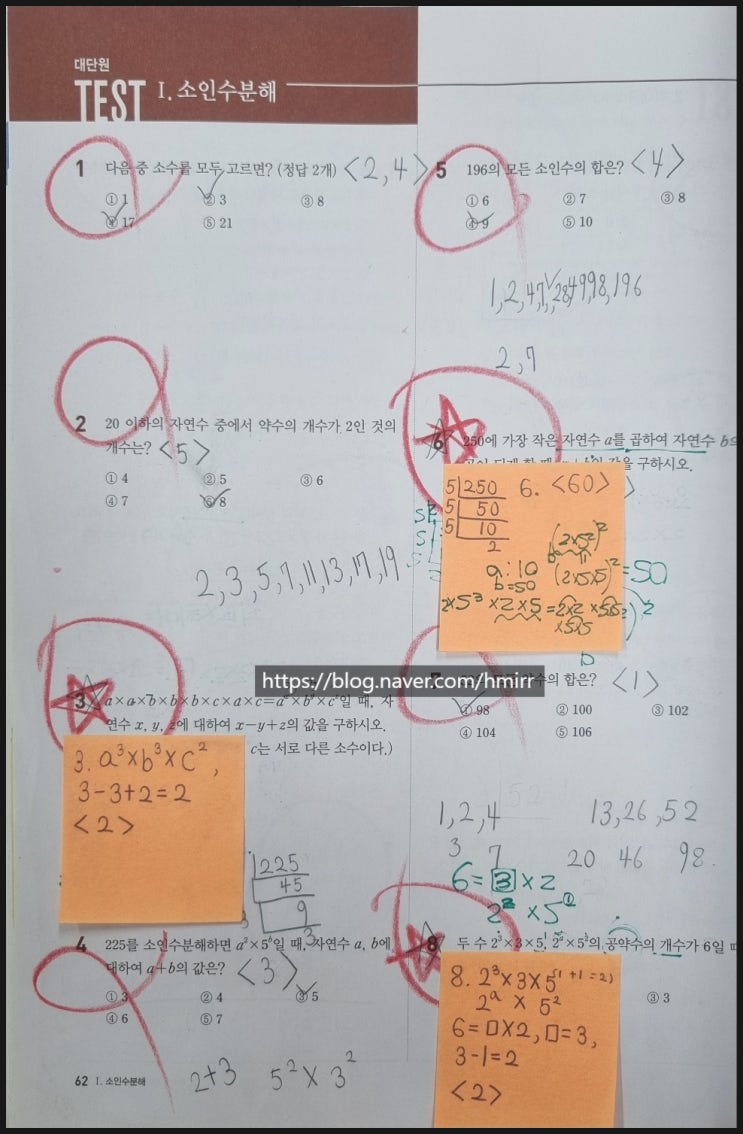 대단원
TEST I. 소인수분해
1 다음 중 소수를 모두 고르면? (정답 2개) <2, 4>
① 1 ② 3 ③ 8
④ 17 ⑤ 21
2 20 이하의 자연수 중에서 약수의 개수가 2인 것의
개수는? <5>
① 4 ② 5 ③ 6
④ 7 ⑤ 8
2, 3, 5, 7, 11, 13, 17, 19
3 a×a×b×b×b×c×a×c=aˣ×bʸ×cᶻ일 때, 자
연수 x, y, z에 대하여 x−y+z의 값을 구하시오.
c는 서로 다른 소수이다.)
3. a³×b³×c²,
3−3+2=2
<2>
225
45
9
3
4 225를 소인수분해하면 aˣ×5ᵇ일 때, 자연수 a, b에
대하여 a+b의 값은? <3>
① 3 ② 4 ③ 5
④ 6 ⑤ 7
2+3 5²×3²
62 I. 소인수분해
5 196의 모든 소인수의 합은? <4>
① 6 ② 7 ③ 8
④ 9 ⑤ 10
2, 7
6 250에 가장 작은 자연수 a를 곱하여 자연수 b의
값을 구하시오.
5 250 6. <60>
5 50
5 10
2
a:10
b=50
(2×5×5)²=50
2×5³×2×5=2×2×5×5
×5×5
https://blog.naver.com/hmirr
수의 합은? <1>
① 98 ② 100 ③ 102
④ 104 ⑤ 106
1, 2, 4 13, 26, 52
3 7 20 46 98.
6=3×2
2²×5①
8 두 수 2³×3×5, 2ᵃ×5²의 공약수의 개수가 6일 때
③ 3
8. 2³×3×5 (1+1=2)
2ᵃ×5²
6=□×2, □=3,
3−1=2
<2>